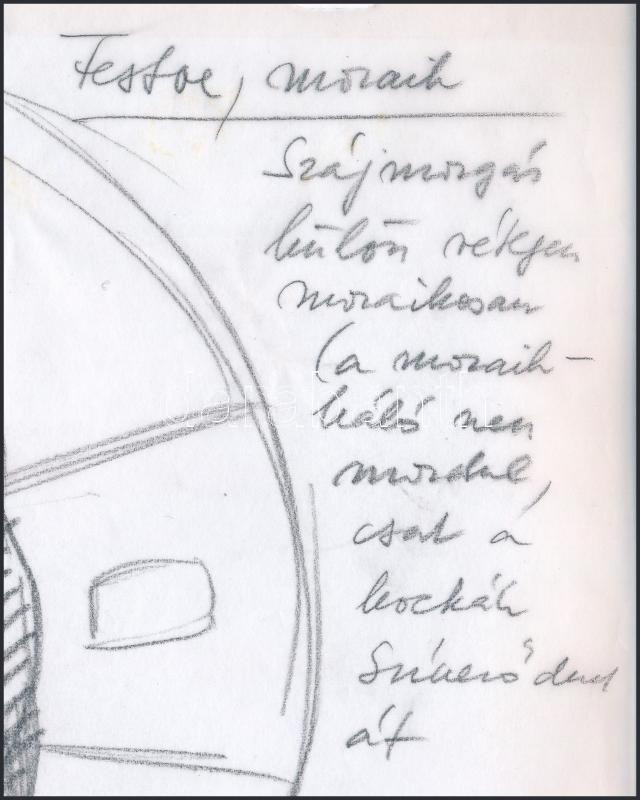 Festve, mozaik
Szájmozgás
külön rétegen
mozaikosan
(a mozaik-
háló nem
mozdul,
csak a
kockák
Színeződnek
át
darabanth